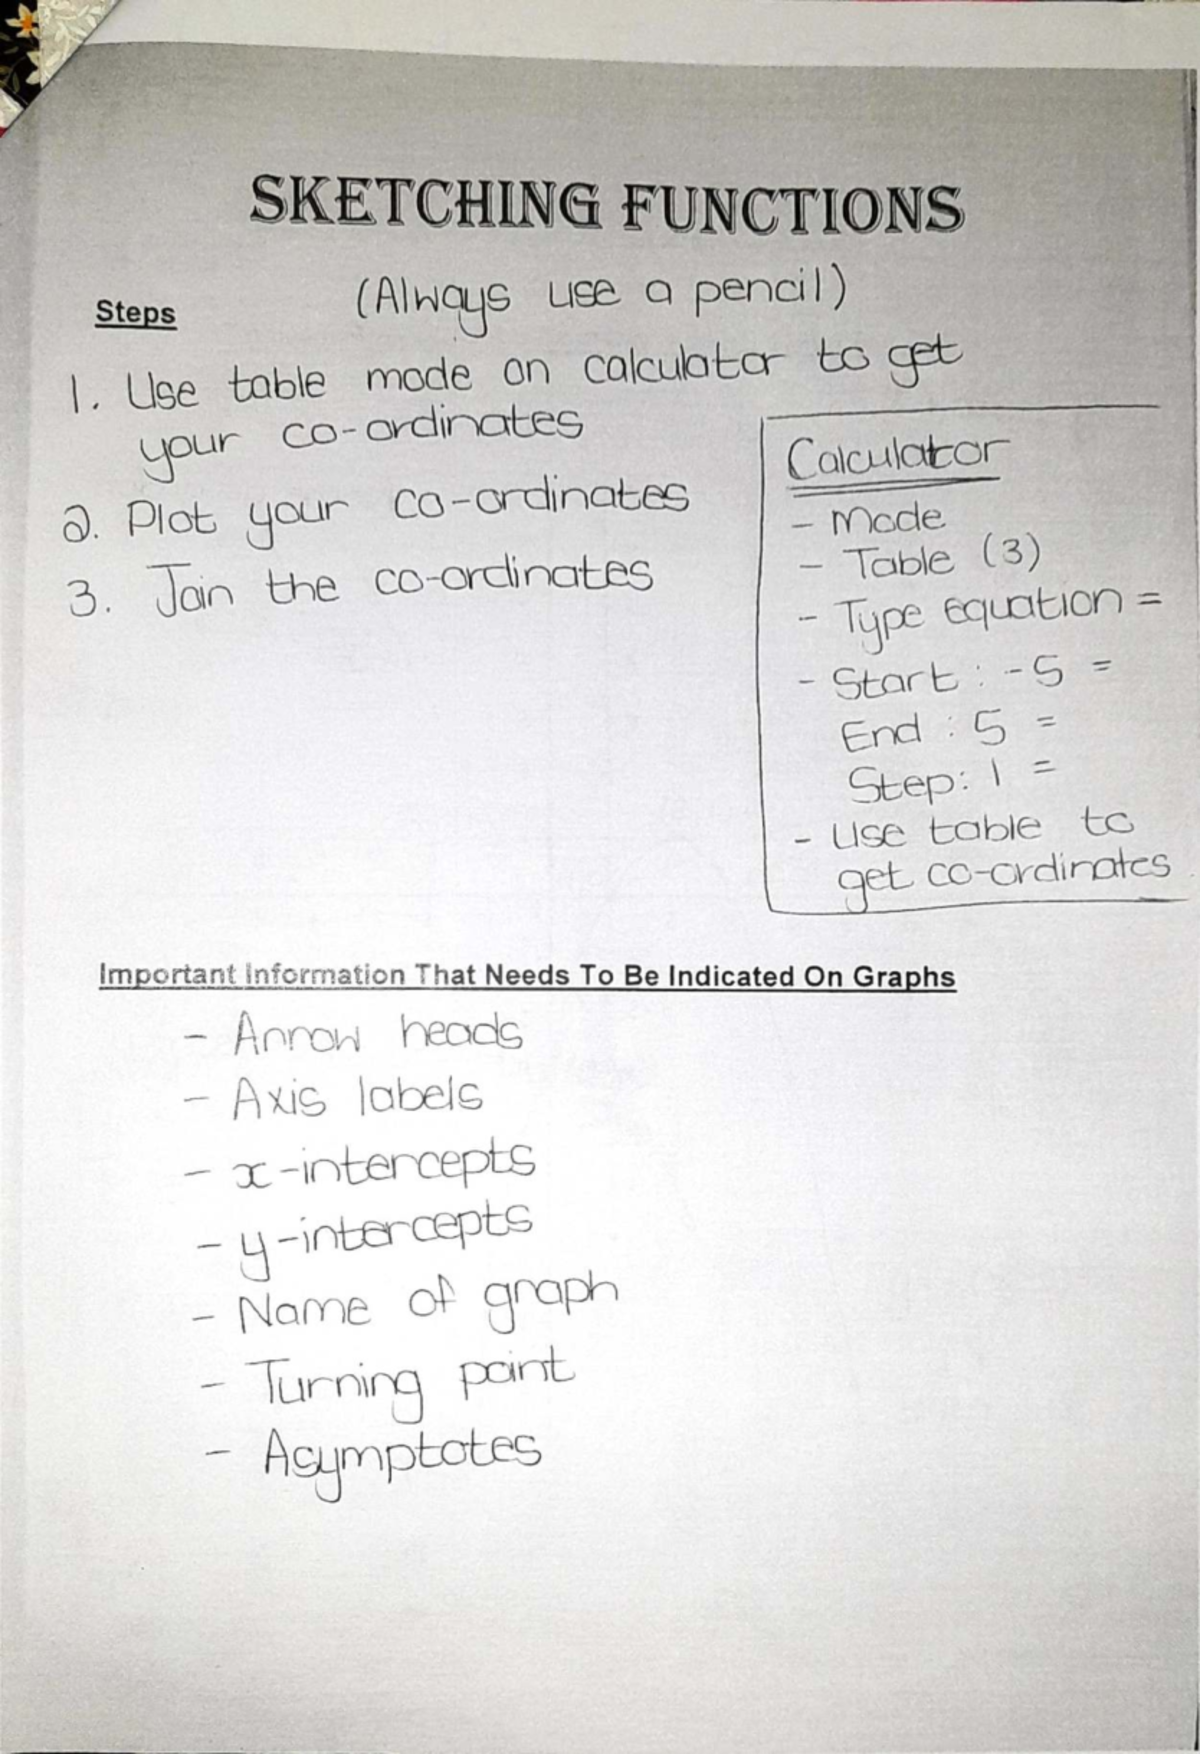 SKETCHING FUNCTIONS
(Always use a pencil)
Steps
1. Use table mode on calculator to get
your co-ordinates
2. Plot your co-ordinates
3. Join the co-ordinates
Calculator
- Mode
- Table (3)
- Type equation =
- Start : -5 =
End : 5 =
Step: 1 =
- Use table to
get co-ordinates
Important Information That Needs To Be Indicated On Graphs
- Arrow heads
- Axis labels
- x-intercepts
- y-intercepts
- Name of graph
- Turning point
- Asymptotes